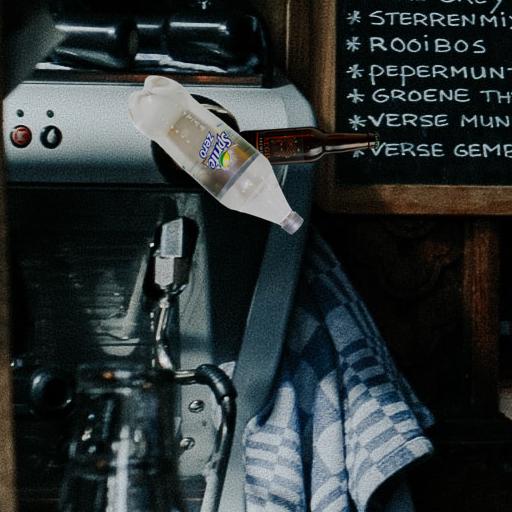 * STERRENMI
* ROOIBOS
* PEPERMUNT
* GROENE TH
* VERSE MUN
* VERSE GEMB
Sprite
zero